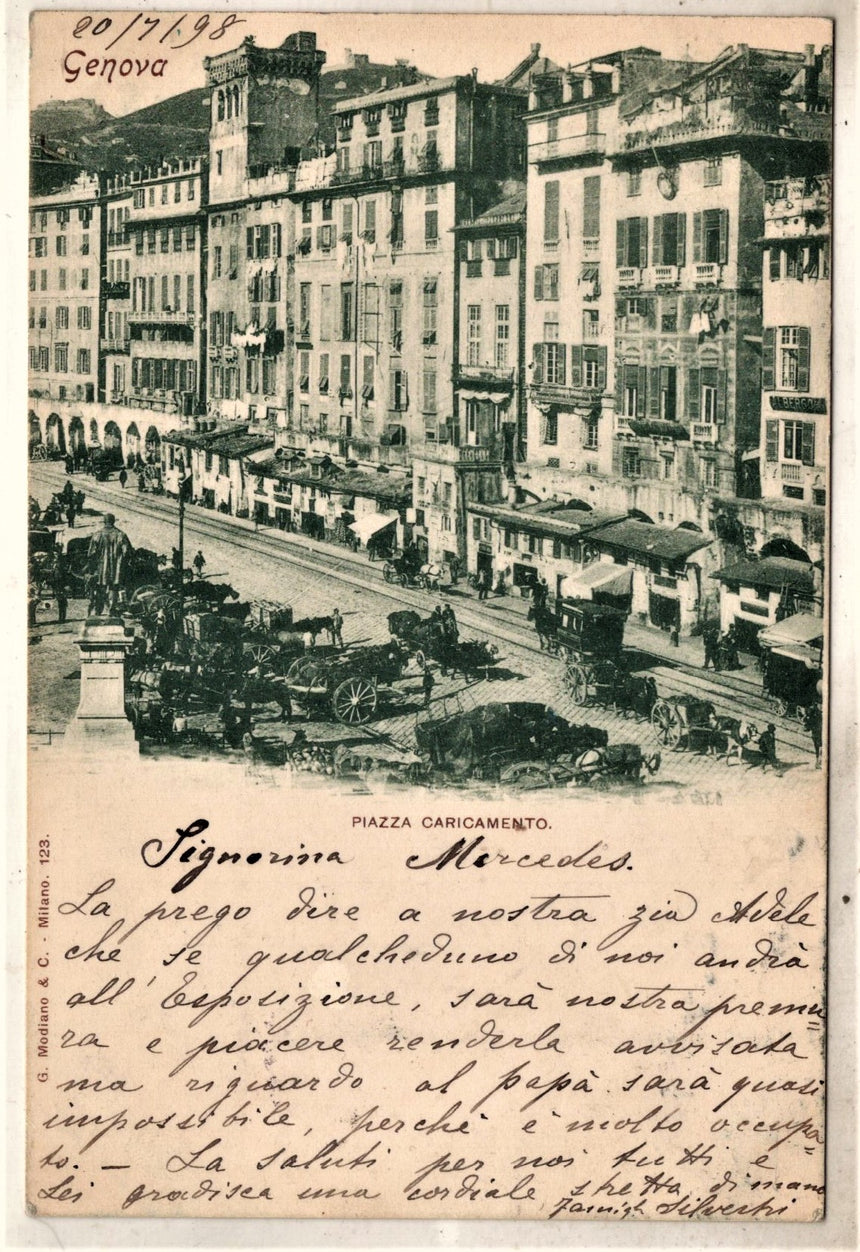 20/7/98
Genova
ALBERGO
PIAZZA CARICAMENTO.
G. Modiano & C. - Milano. 123.
Signorina Mercedes.
La prego dire a nostra zia Adele
che se qualcheduno di noi andrà
all'Esposizione, sarà nostra premu=
ra e piacere renderla avvisata
ma riguardo al papà sarà quasi
impossibile, perchè è molto occupa=
to. — La saluti per noi tutti e
Lei gradisca una cordiale stretta di mano
Famigl. Silvestri